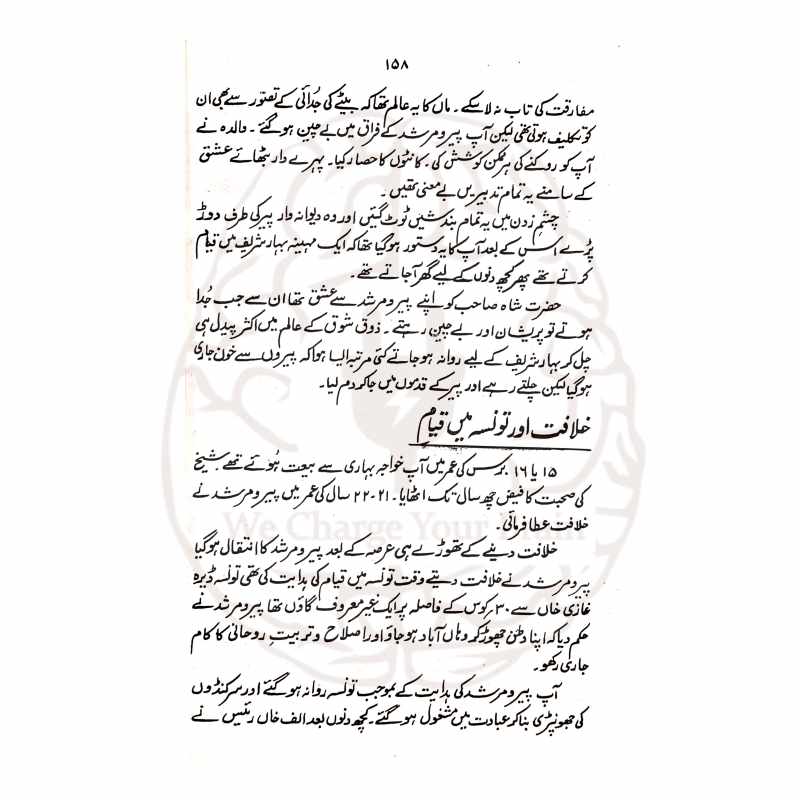 ۱۵۸
مفارقت کی تاب نہ لا سکے۔ ماں کا یہ عالم تھا کہ بیٹے کی جُدائی کے تصّور سے بھی ان
کو تکلیف ہوتی تھی لیکن آپ پیر و مرشد کے فراق میں بے چین ہو گئے۔ والدہ نے
آپ کو روکنے کی ہر ممکن کوشش کی۔ کانٹوں کا حصار کیا۔ پہرے دار بٹھائے عشق
کے سامنے یہ تمام تدبیریں بے معنی تھیں۔
چشمِ زدن میں یہ تمام بندشیں ٹوٹ گئیں اور وہ دیوانہ وار پیر کی طرف دوڑ
پڑے اس کے بعد آپ کا یہ دستور ہو گیا تھا کہ ایک مہینہ بہار شریف میں قیام
کرتے تھے پھر کچھ دنوں کے لیے گھر آجاتے تھے۔
حضرت شاہ صاحب کو اپنے پیر و مرشد سے عشق تھا ان سے جب جُدا
ہوتے تو پریشان اور بے چین رہتے۔ ذوق شوق کے عالم میں اکثر پیدل ہی
چل کر بہار شریف کے لیے روانہ ہو جاتے کئی مرتبہ ایسا ہوا کہ پیروں سے خون جاری
ہو گیا لیکن چلتے رہے اور پیر کے قدموں میں جا کر دم لیا۔
خلافت اور تونسہ میں قیام
۱۵ یا ۱۶ برس کی عمر میں آپ خواجہ بہاری سے بیعت ہُوئے تھے شیخ
کی صحبت کا فیض چھ سال تک اٹھایا۔ ۲۱-۲۲ سال کی عمر میں پیر و مرشد نے
خلافت عطا فرمائی۔
خلافت دینے کے تھوڑے ہی عرصہ کے بعد پیر و مرشد کا انتقال ہو گیا
پیر و مرشد نے خلافت دیتے وقت تونسہ میں قیام کی ہدایت کی تھی تونسہ ڈیرہ
غازی خاں سے ۳۰ کوس کے فاصلہ پر ایک غیر معروف گاؤں تھا پیر و مرشد نے
حکم دیا کہ اپنا وطن چھوڑ کر وہاں آباد ہو جاؤ اور اصلاح و تربیتِ روحانی کا کام
جاری رکھو۔
آپ پیر و مرشد کی ہدایت کے بموجب تونسہ روانہ ہو گئے اور سرکنڈوں
کی جھونپڑی بنا کر عبادت میں مشغول ہو گئے۔ کچھ دنوں بعد الف خاں رئیس نے
We Charge Your Brain